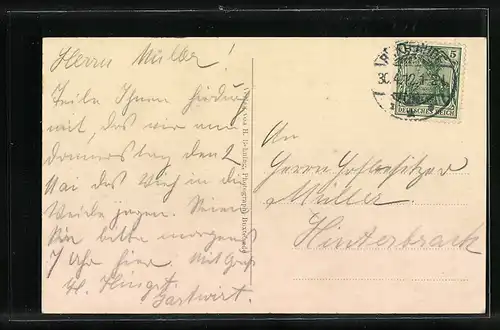 Herrn Müller!
Teile Ihnen hierdurch
mit, das wir am
Donnerstag den 2
Mai das Vieh in die
Weide jagen. Seien
Sie bitte morgens
7 Uhr hier. Mit Gruß
H. Hingst
Gastwirt.
Photograph
30.4.12
5
DEUTSCHES REICH
An
Herrn Hofbesitzer
Müller
Hinterbrack